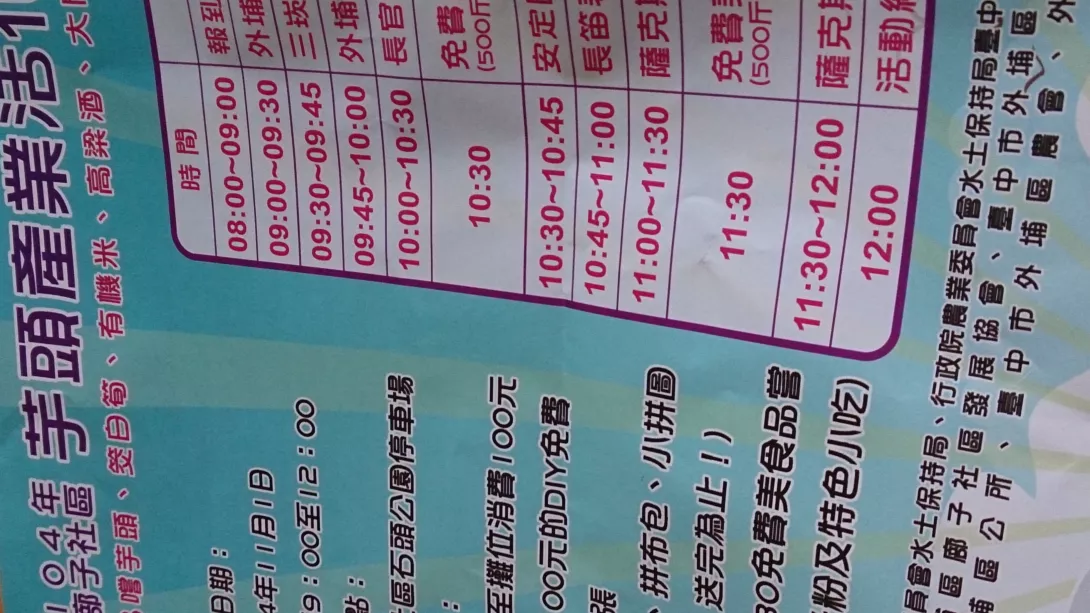 104年
廍子社區 芋頭產業活
嚐芋頭、筊白筍、有機米、高粱酒、大
日期：
4年11月1日
9：00至12：00
點：
區石頭公園停車場
：
至攤位消費100元
00元的DIY免費
張
、拼布包、小拼圖
送完為止！)
30免費美食品嘗
粉及特色小吃)
時間
08:00~09:00 報到
09:00~09:30 外埔
09:30~09:45 三崁
09:45~10:00 外埔
10:00~10:30 長官
10:30 免費 (500斤
10:30~10:45 安定
10:45~11:00 長笛
11:00~11:30 薩克斯
11:30 免費 (500斤
11:30~12:00 薩克斯
12:00 活動
員會水土保持局、行政院農業委員會水土保持局臺中
區廍子社區發展協會、臺中市外埔區
埔區公所、臺中市外埔區農會、外